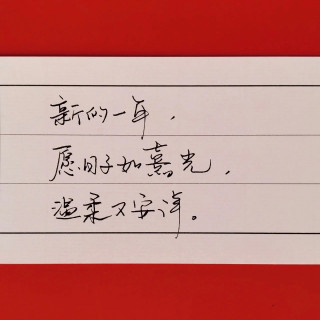 新的一年，
愿日子如熹光，
温柔又安详。